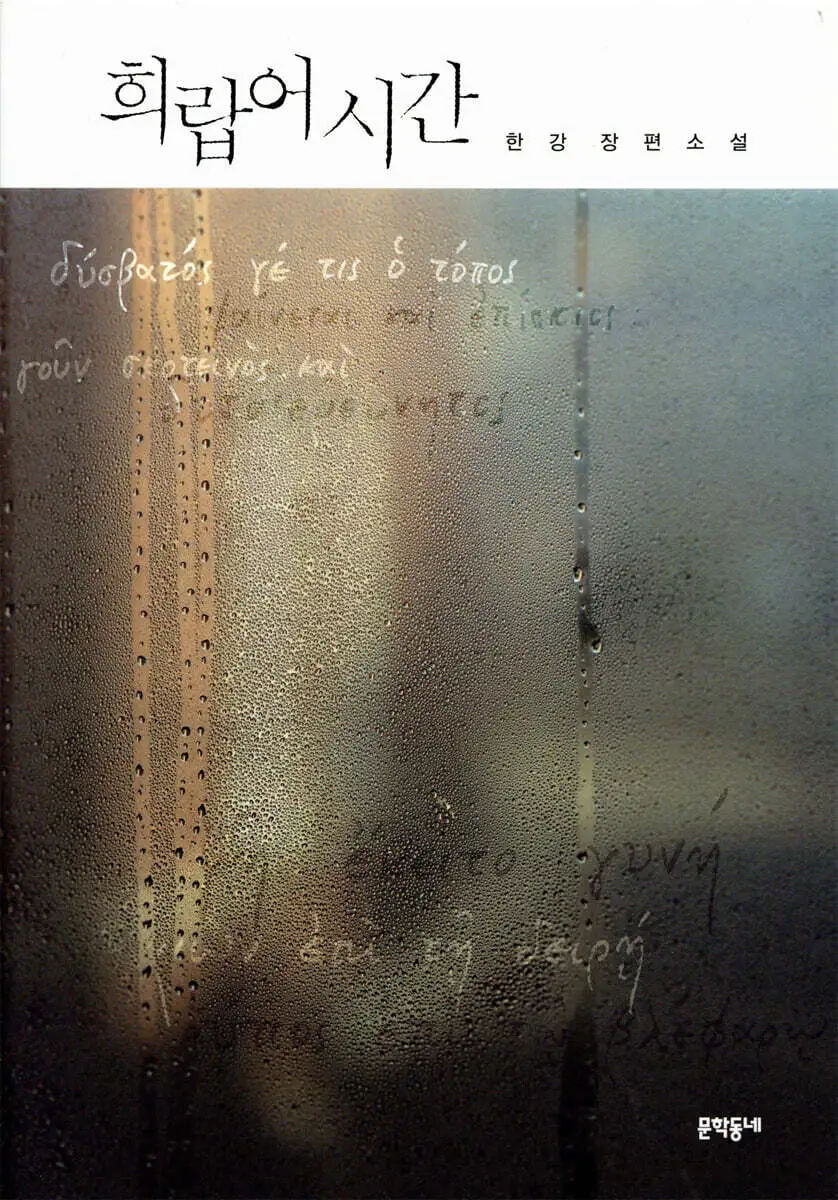 희랍어 시간
한강 장편소설
δύσβατός γέ τις ὁ τόπος
φαίνεται καὶ ἐπίσκιος
γοῦν σκοτεινὸς καὶ
γυνή
ἐπὶ τῇ δειρῇ
βλεφάρῳ
문학동네